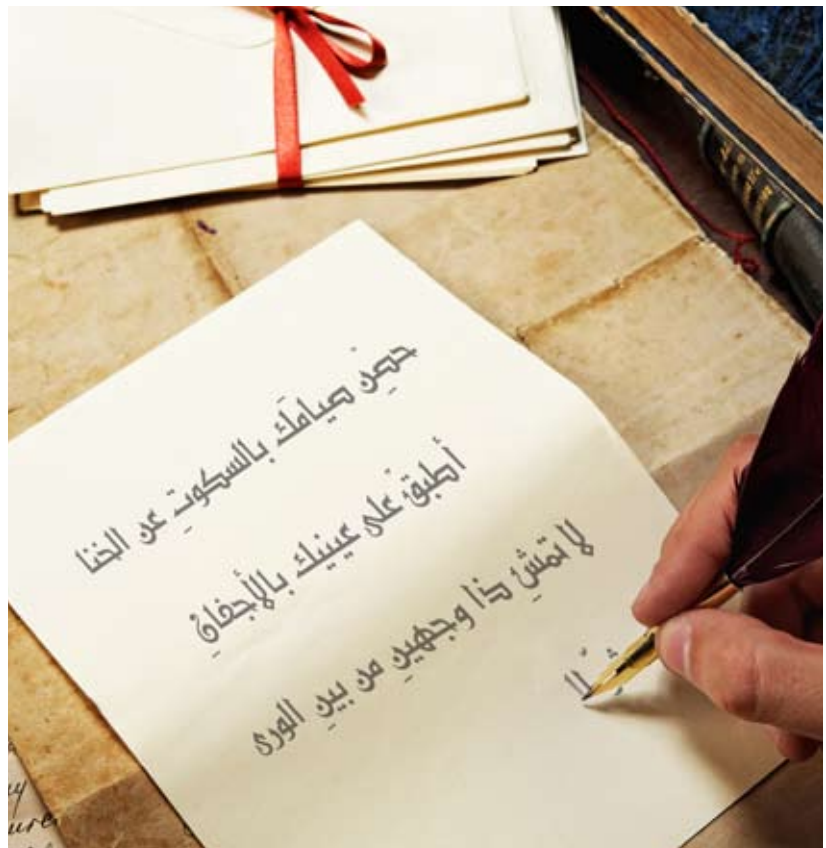 حصِّن صيامَك بالسكوتِ عن الخنا
أطبقْ على عينيك بالأجفانِ
لا تمشِ ذا وجهينِ من بينِ الورى